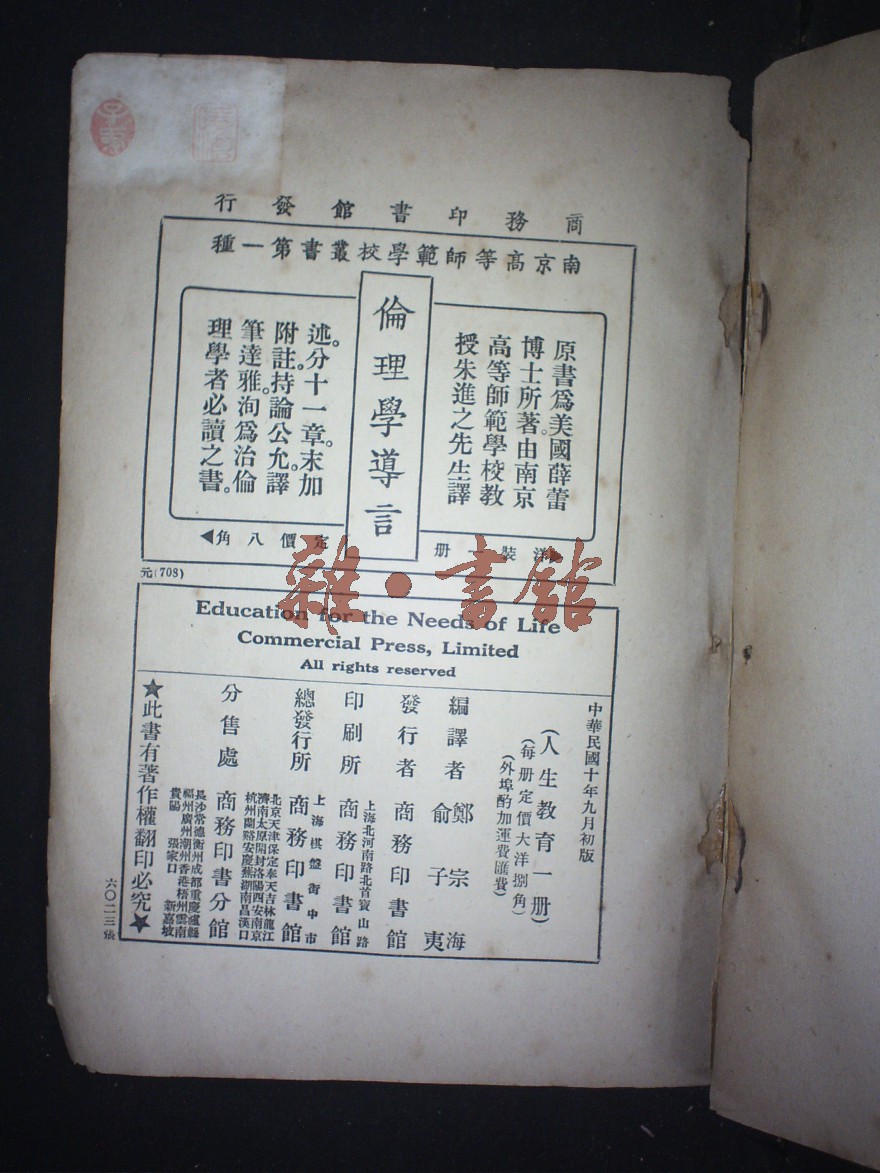 商務印書館發行
南京高等師範學校叢書第一種
倫理學導言
原書爲美國薛蕾
博士所著。由南京
高等師範學校教
授朱進之先生譯
述。分十一章。末加
附註。持論公允。譯
筆達雅。洵爲治倫
理學者必讀之書。
洋裝一册
定價八角
元(708)
雜·書館
Education for the Needs of Life
Commercial Press, Limited
All rights reserved
中華民國十年九月初版
(人生教育一册)
(每册定價大洋捌角)
(外埠酌加運費匯費)
編譯者 鄭宗海
俞子夷
發行者 商務印書館
上海北河南路北首寶山路
印刷所 商務印書館
上海棋盤街中市
總發行所 商務印書館
北京天津保定奉天吉林龍江
濟南太原開封洛陽西安南京
杭州蘭谿安慶蕪湖南昌漢口
分售處 商務印書分館
長沙常德衡州成都重慶瀘縣
福州廣州潮州香港梧州雲南
貴陽 張家口 新嘉坡
★此書有著作權翻印必究★
六〇二三張